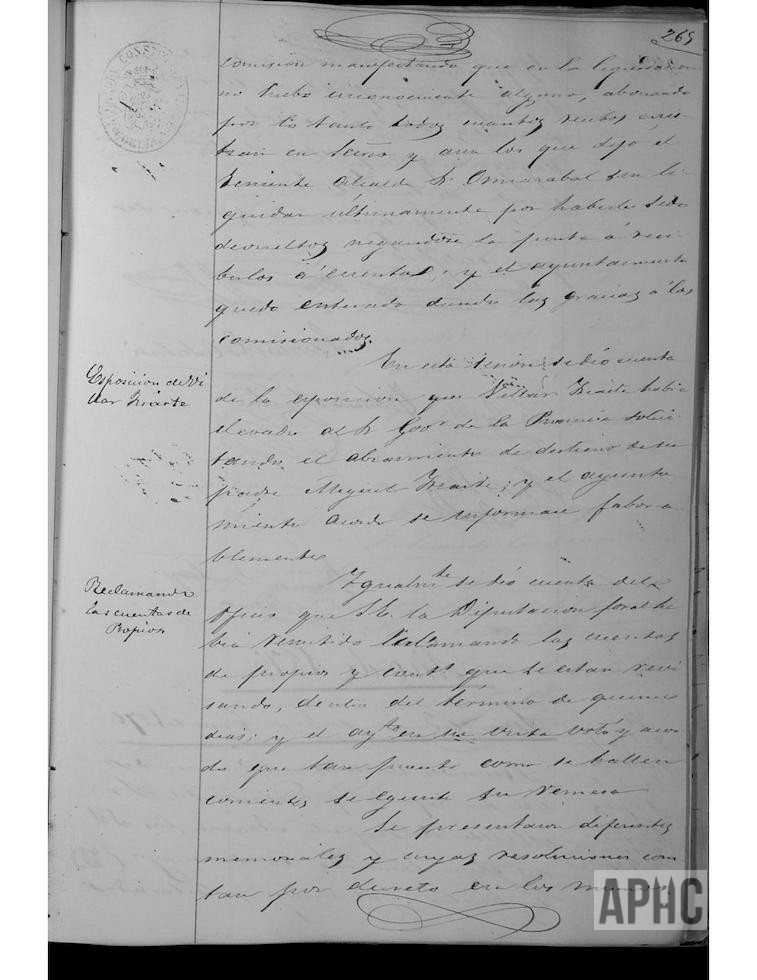 265
comision manifestando que en la liquidacion
no hubo inconveniente alguno, abonando
por lo tanto todos cuantos recibos exis-
tian en Caja y aun los que dejó el
Teniente Alcalde Sr Ormazabal sin li-
quidar ultimamente por haberle sido
devueltos negandose la junta á reci-
birlos á cuenta; y el ayuntamiento
quedó enterado dando las gracias á los
comisionados.
Esposicion de Vi
llar Iriarte
En esta sesion se dió cuenta
de la esposicion que Villar Iriarte habia
elevado al Sr Gobr de la Provincia solici-
tando el alzamiento de destierro de su
padre Miguel Iriarte; y el ayunta
miento acordó se informase favora-
blemente
Reclamando
las cuentas de
Propios
Igualmte se dió cuenta del
oficio que S.E. la Diputacion foral ha
bia remitido reclamando las cuentas
de propios y que se estan revi
sando, dentro del término de quince
dias; y el ayto en su vista votó y acor
dó que tan pronto como se hallen
corrientes se egecute su remesa
Se presentaron diferentes
memoriales y cuyas resoluciones cons
tan por decreto en los mismos.
APHC